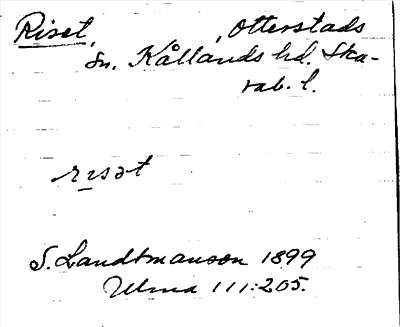 Riset, , Otterstads
sn. Kållands hd. Ska-
rab. l.
rɩsət
S. Landtmanson 1899
Ulma 111:205.